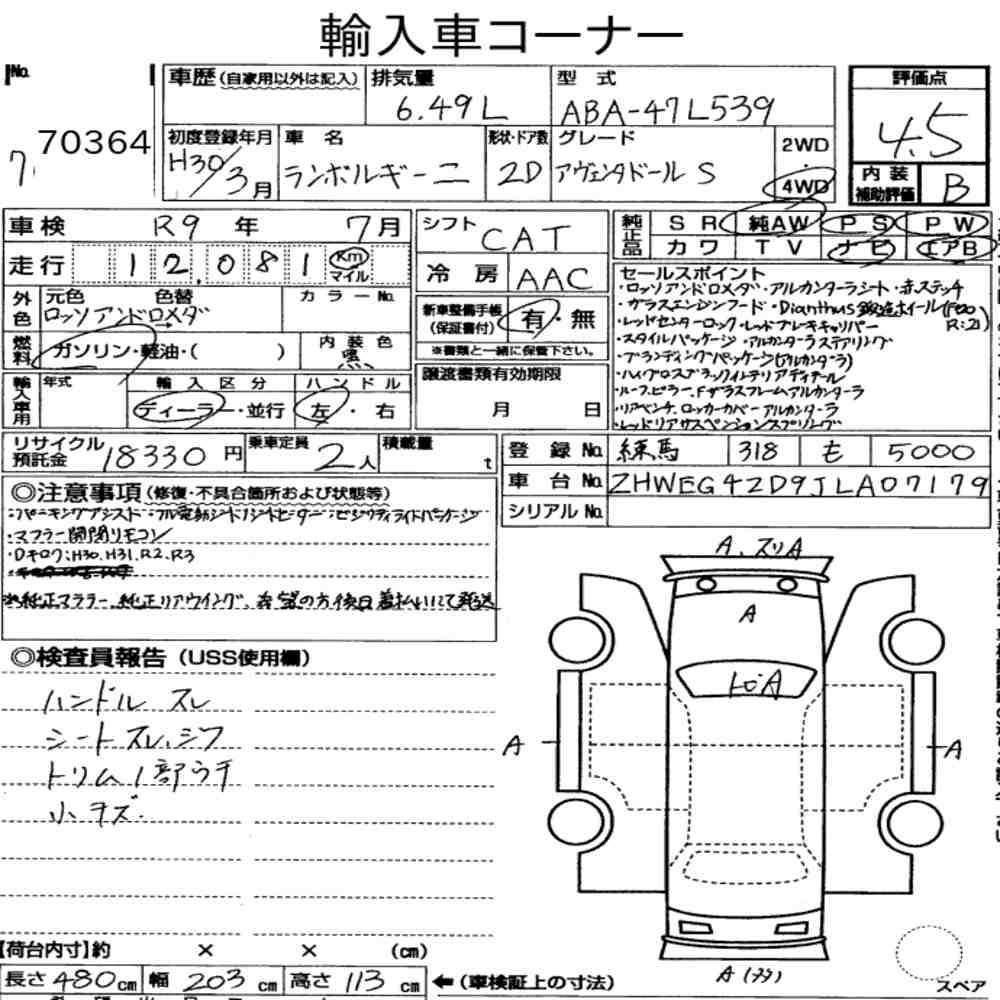 輸入車コーナー
No.
70364
7
車歴(自家用以外は記入)
排気量
6.49L
型式
ABA-47L539
評価点
4.5
初度登録年月
H30/3月
車名
ランボルギーニ
形状・ドア数
2D
グレード
アヴェンタドール S
2WD
・
4WD
内装
補助評価
B
車検 R9年 7月
走行 12,081 Km マイル
シフト CAT
冷房 AAC
純正品
SR 純AW PS PW
カワ TV ナビ エアB
外色
元色 色替
カラーNo.
ロッソアンドロメダ
燃料
ガソリン・軽油・( )
内装色
黒
新車整備手帳
(保証書付)
有・無
※書類と一緒に保管下さい。
輸入車用
年式
輸入区分
ディーラー・並行
ハンドル
左・右
譲渡書類有効期限
月 日
セールスポイント
・ロッソアンドロメダ・アルカンターラシート・赤ステッチ
・ガラスエンジンフード・Dianthus鍛造ホイール(F20 R:21)
・レッドセンターロック・レッドブレーキキャリパー
・スタイルパッケージ・アルカンターラステアリング
・ブランディングパッケージ(アルカンターラ)
・ハイグロスブラックインテリアディテール
・ルーフ.ピラー.Fガラスフレームアルカンターラ
・リアベンチ.ロッカーカバーアルカンターラ
・レッドリアサスペンションスプリング
リサイクル
預託金
18330円
乗車定員
2人
積載量
t
登録No. 練馬 318 も 5000
車台No. ZHWEG42D9JLA07179
シリアルNo.
◎注意事項(修復・不具合箇所および状態等)
・パーキングアシスト・フル電動シート/シートヒーター・ビジリティライトパッケージ
・マフラー開閉リモコン
・Dキロク:H30.H31.R2.R3
※純正マフラー、純正リアウイング、希望の方後日着払いにて発送
◎検査員報告(USS使用欄)
ハンドル スレ
シートスレ、シワ
トリム1部ウチ
小キズ.
A.スリA
A
トビA
A
A
A(フタ)
スペア
【荷台内寸】約 × × (cm)
長さ480cm 幅203cm 高さ113cm
←(車検証上の寸法)